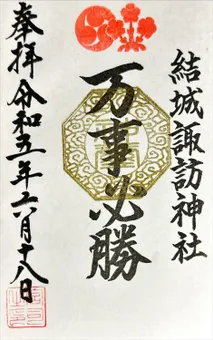 結城諏訪神社
万事必勝
奉拝 令和五年六月十八日